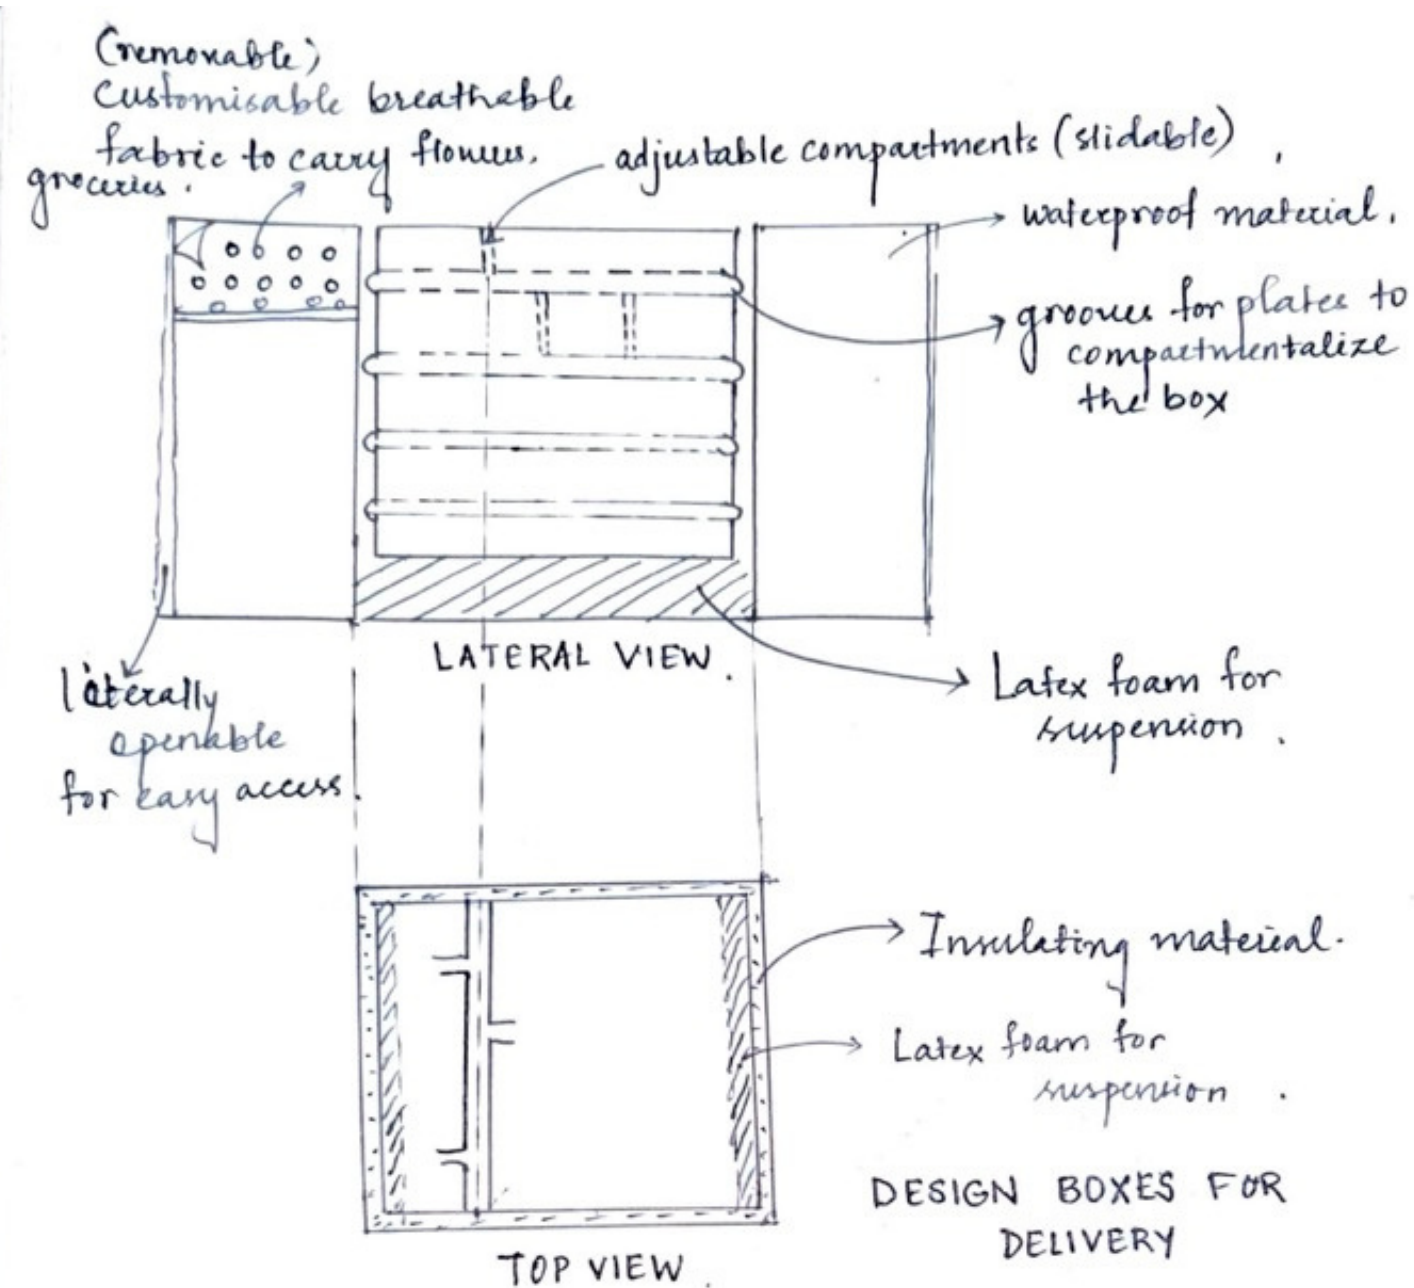 (removable)
Customisable breathable
fabric to carry flowers,
groceries.
adjustable compartments (slidable)
waterproof material.
grooves for plates to
compartmentalize
the box
LATERAL VIEW.
laterally
openable
for easy access.
Latex foam for
suspension.
Insulating material.
Latex foam for
suspension.
DESIGN BOXES FOR
DELIVERY
TOP VIEW.